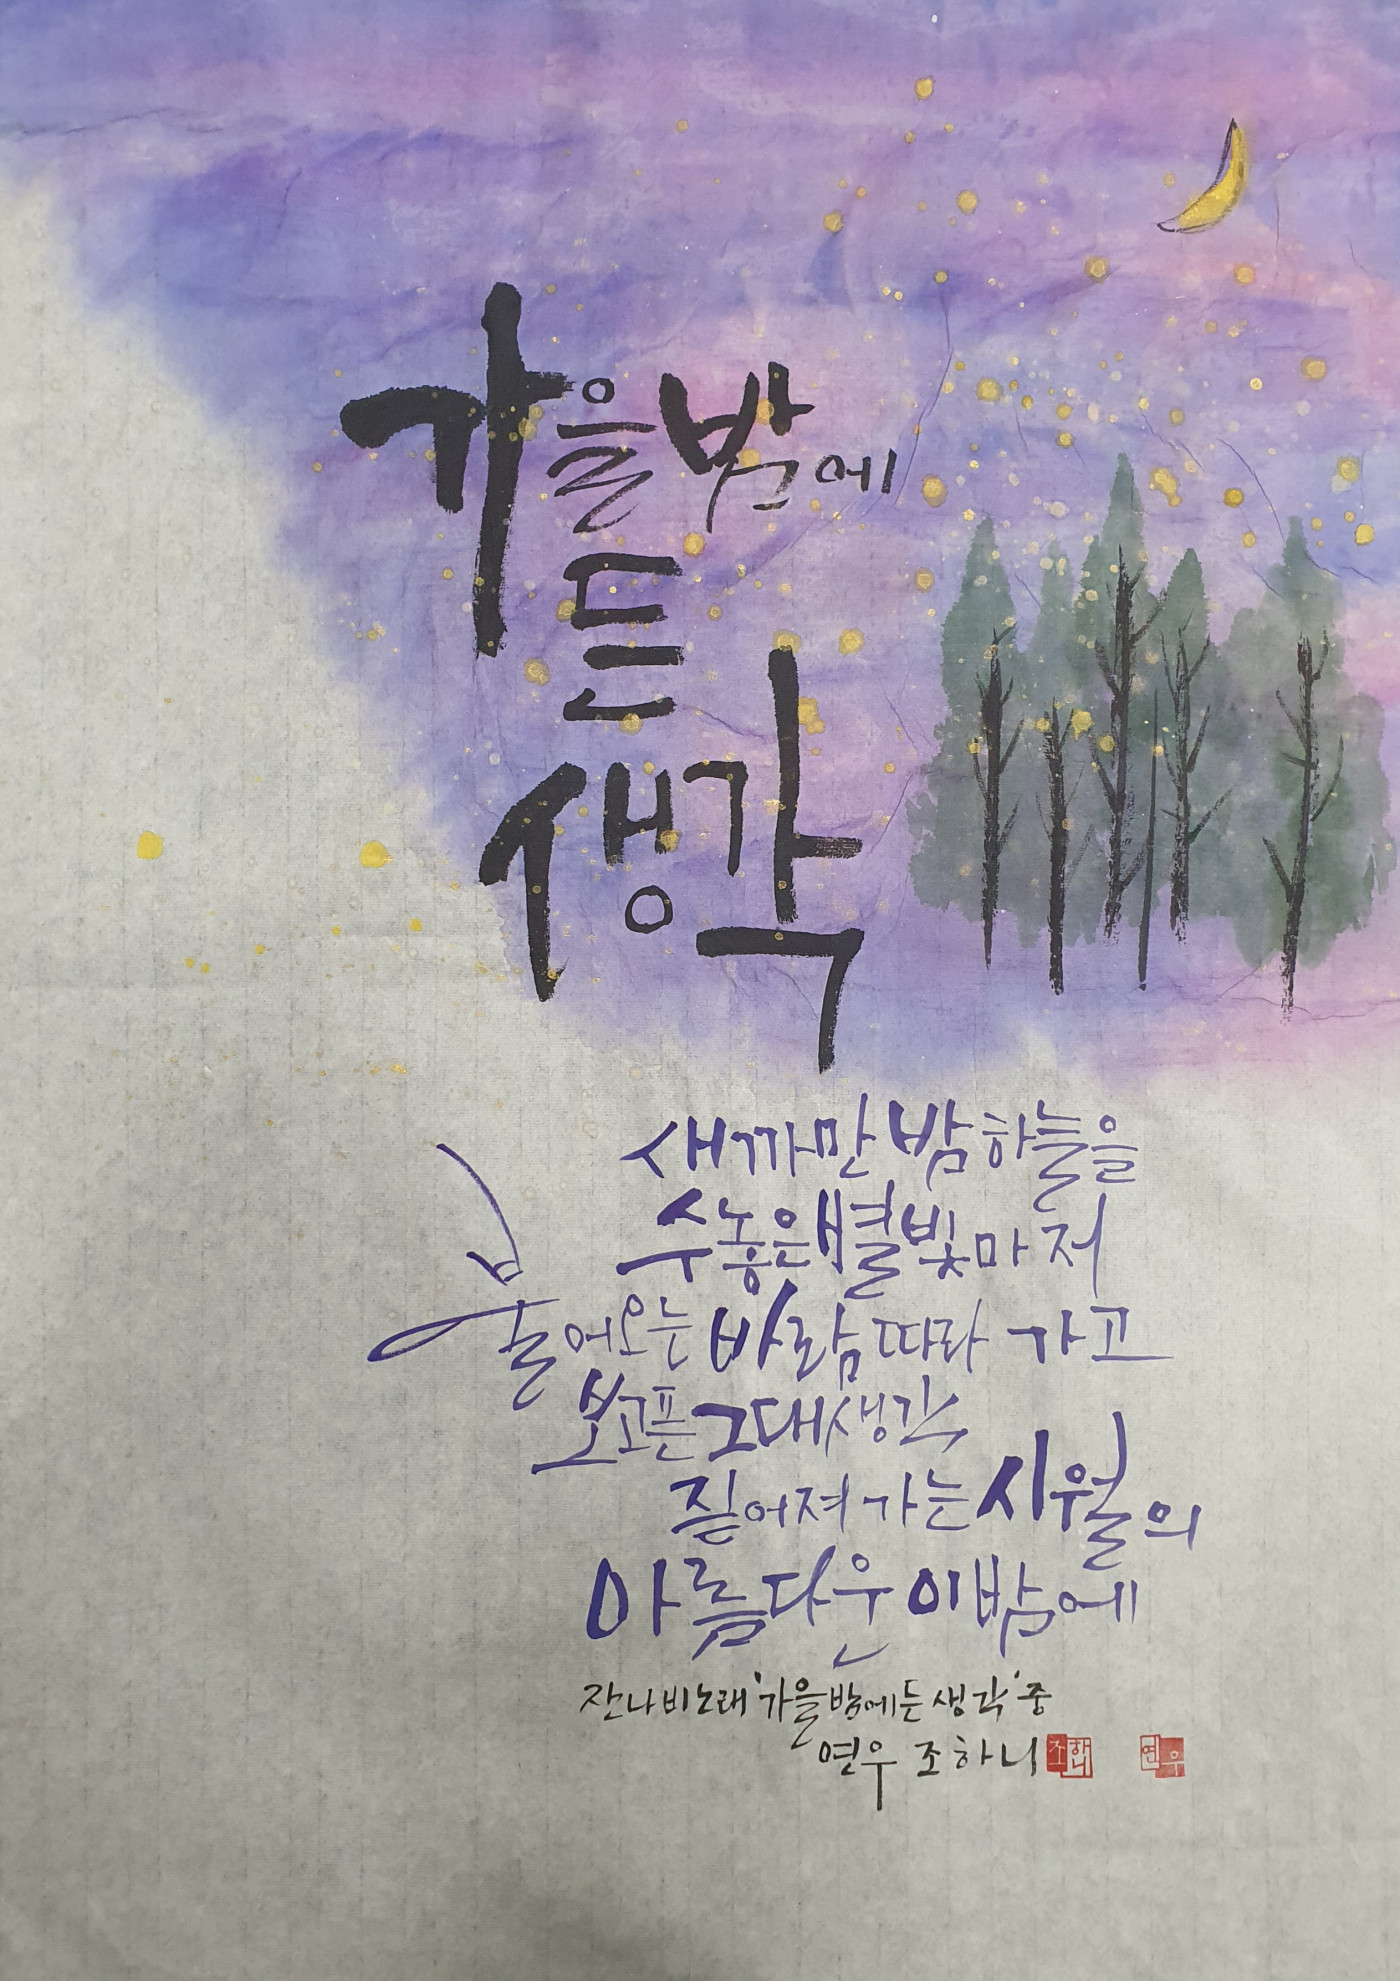 가을밤에
든
생각
새까만 밤하늘을
수놓은 별빛마저
불어오는 바람 따라 가고
보고픈 그대 생각
짙어져 가는 시월의
아름다운 이 밤에
잔나비 노래 '가을밤에 든 생각' 중
연우 조하니
조하니 연우